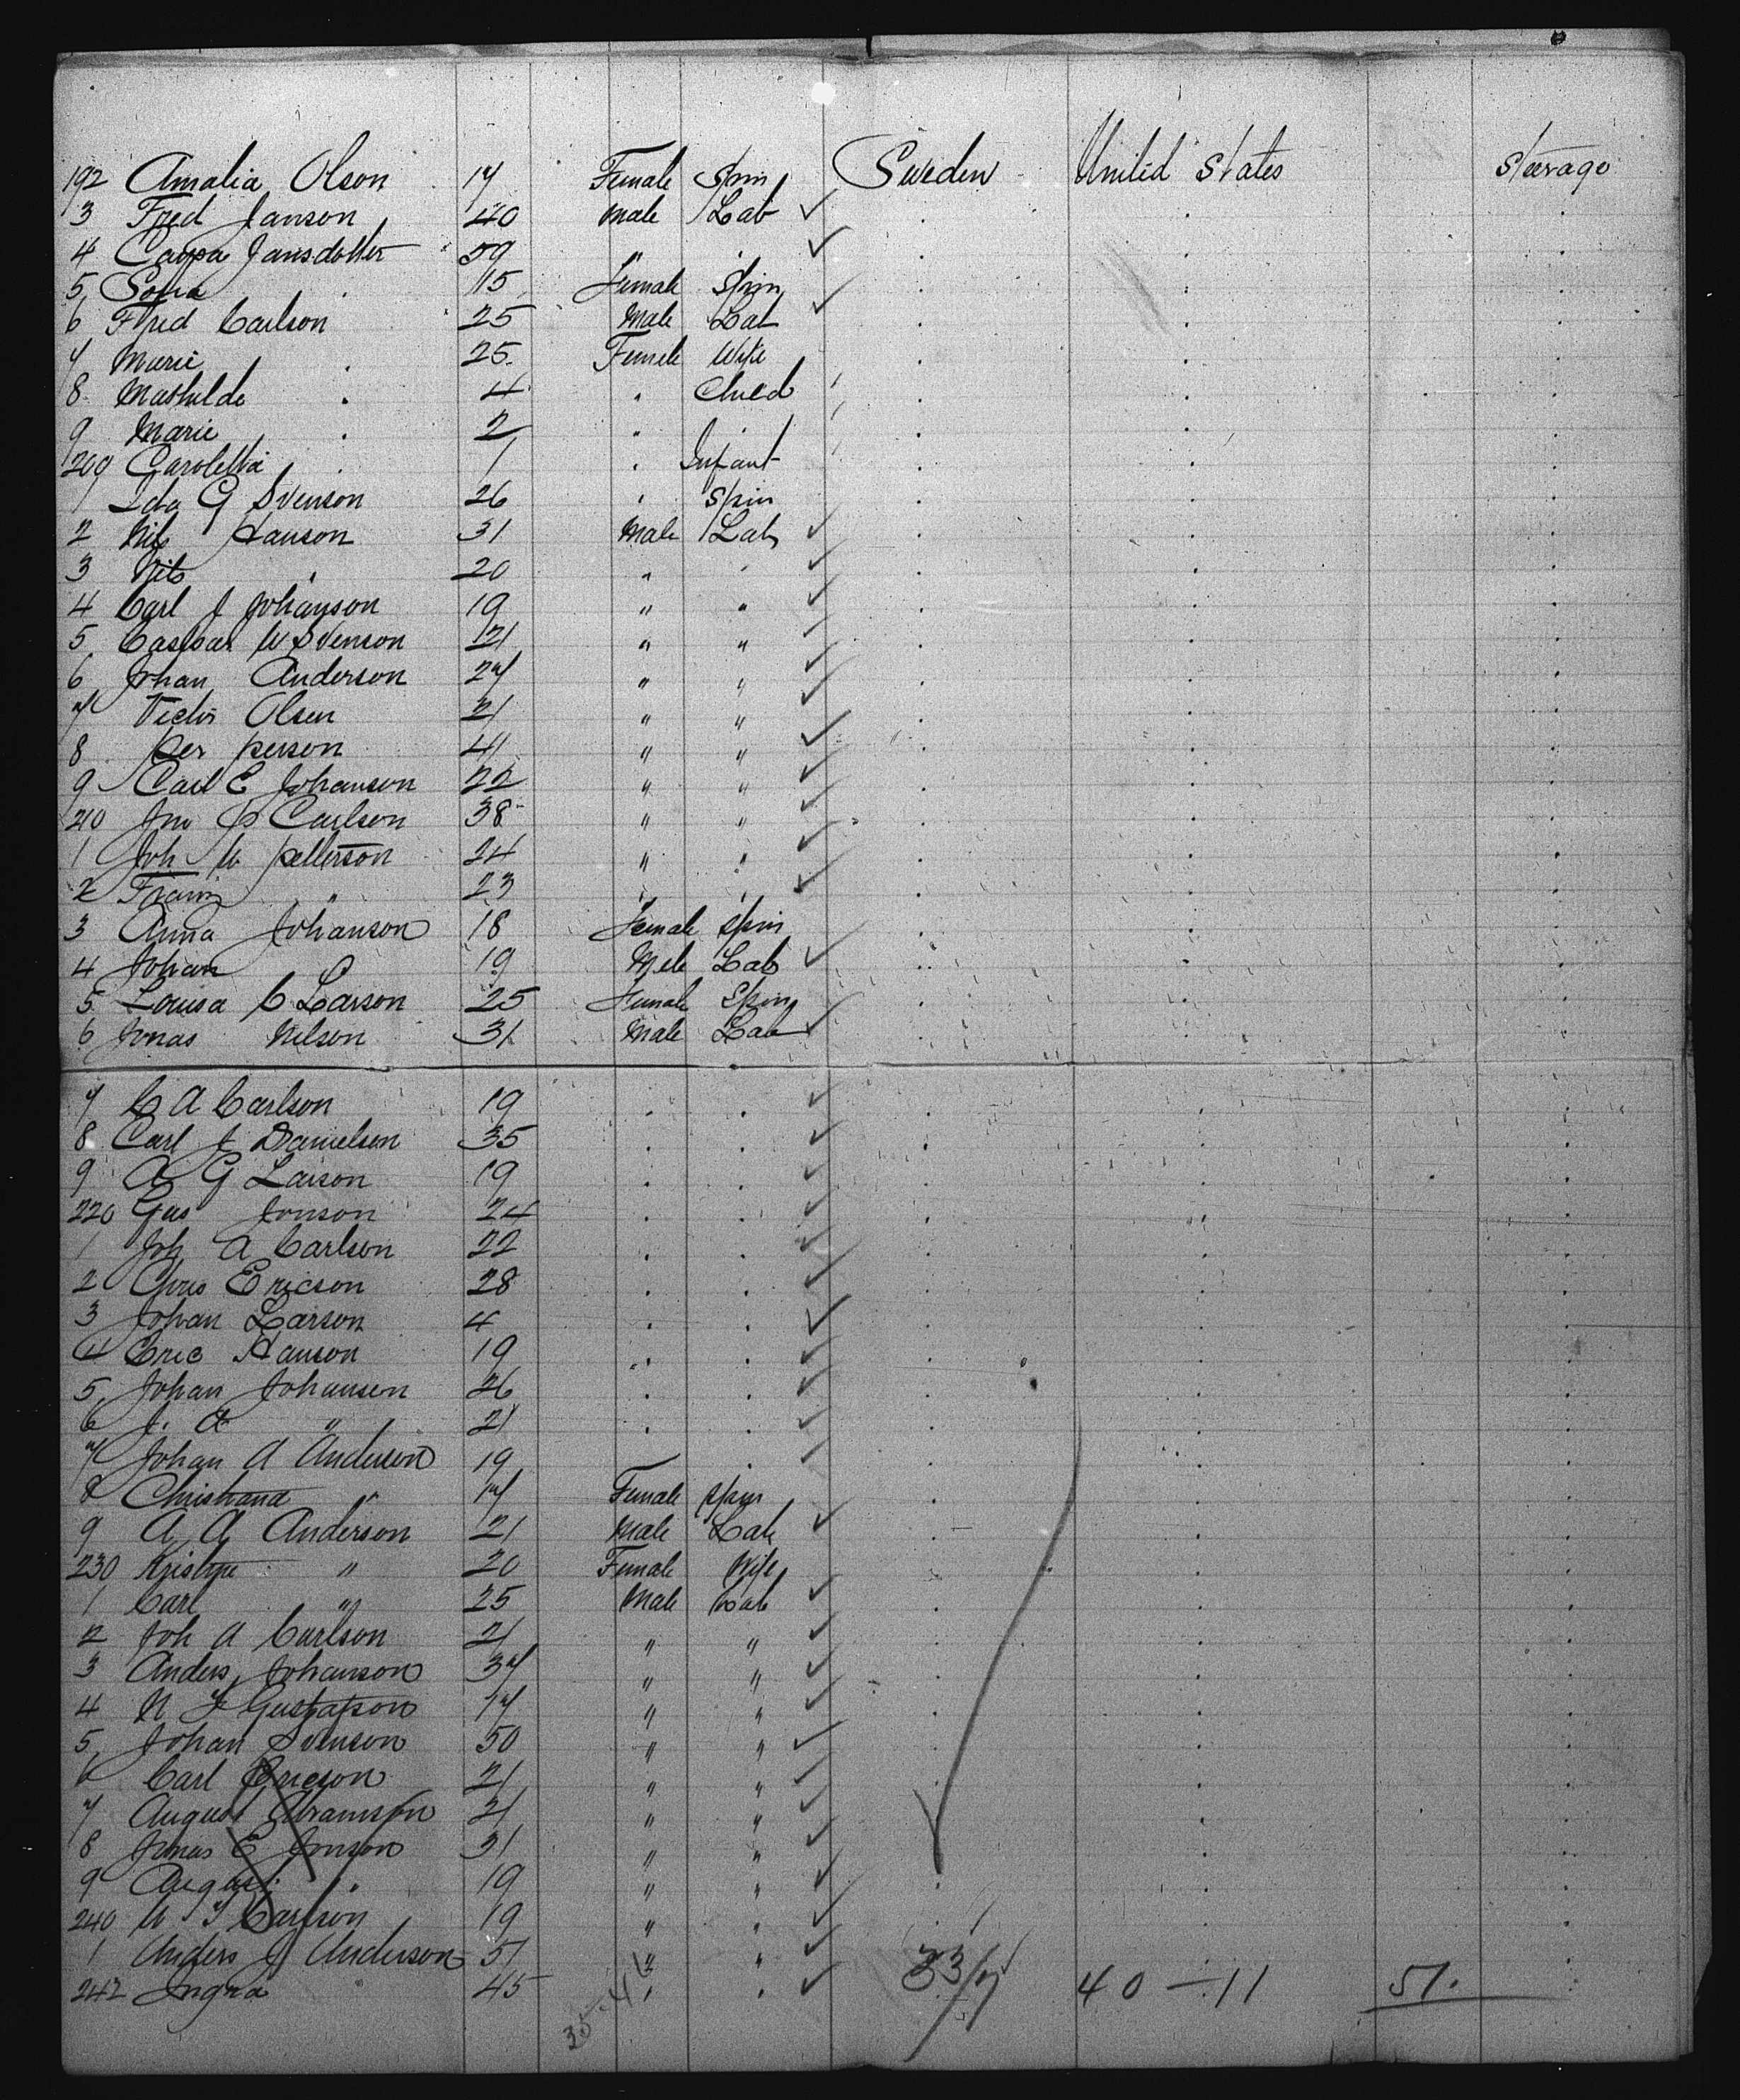 192 Amalia Olson 17 Female Spin Sweden United States Steerage
3 Fred Janson 40 Male Lab
4 Jansdotter 59 " "
5 Sofia . 15 Female Spin
6 Fred Carlson 25 Male Lab
7 Marie . 25 Female Wife
8 Mathilde . 4 " Child
9 Marie . 2 " "
200 . 1 . Infant
1 Ida G Svenson 26 " Spin
2 Nils Hanson 31 Male Lab
3 Nils " 20 " "
4 Carl J Johanson 19 " "
5 Caspar W Svenson 21 " "
6 Johan Anderson 27 " "
7 Victor Olsen 21 " "
8 Per Person 41 " "
9 Carl E Johanson 22 " "
210 Jno P Carlson 38 " "
1 Joh Petterson 24 " "
2 Franz " 23 " "
3 Anna Johanson 18 Female Spin
4 Johan " 19 Male Lab
5 Louisa C Larson 25 Female Spin
6 Jonas Nilson 31 Male Lab
7 C A Carlson 19 . .
8 Carl J Danielson 35 . .
9 A G Larson 19 . .
220 Gus Jonson 24 . .
1 Joh A Carlson 22 . .
2 Chris Ericson 28 . .
3 Johan Larson 4 . .
4 Eric Hanson 19 . .
5 Johan Johansen 26 . .
6 J. A " 21 . .
7 Johan A Anderson 19 .
8 Christiana " 17 Female Spin
9 A A Anderson 21 Male Lab
230 " 20 Female Wife
1 Carl " 25 Male Lab
2 Joh A Carlson 21 " "
3 Anders Johanson 37 " "
4 N F Gustafson 17 " "
5 Johan Svenson 50 " "
6 Carl Ericson 21 " "
7 August Abramson 21 " "
8 Jonas E Jonson 31 " "
9 August " 19 " "
240 Carlson 19 " "
1 Anders J Anderson 51 " "
242 45 " " 33/7 40 - 11 51.